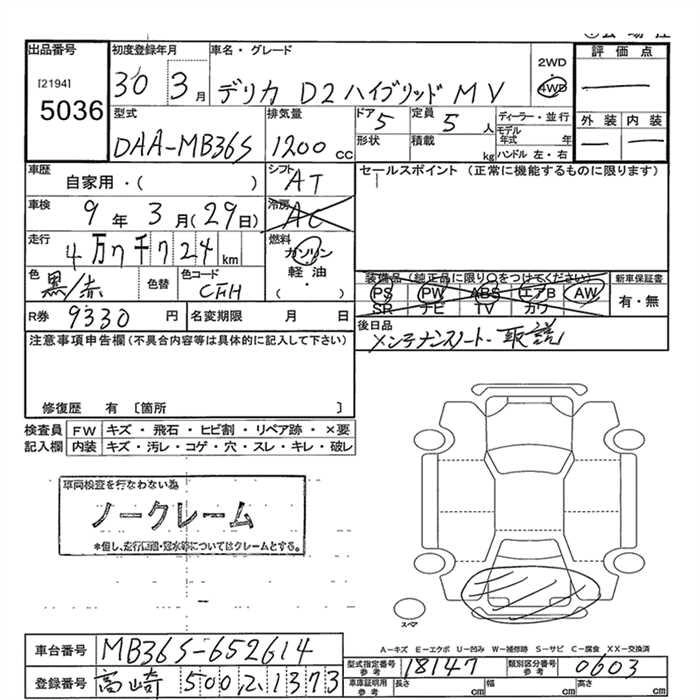 出品番号 初度登録年月 車名・グレード 評価点
[2194] 5036 30 3月 デリカ D2 ハイブリッド MV 2WD 4WD ―
型式 排気量 ドア 5 定員 5人 ディーラー・並行 外装 内装
DAA-MB36S 1200cc 形状 積載 kg モデル年式 年 ハンドル 左・右 ― ―
車歴 自家用・( ) シフト AT セールスポイント (正常に機能するものに限ります)
車検 9年 3月(29日) 冷房 AC
走行 4万7千724km 燃料 ガソリン 軽油・( )
色 黒/赤 色替 色コード CFH
装備品 (純正品に限り○をつけてください) 新車保証書
PS PW ABS エアB AW 有・無
SR ナビ TV カワ
R券 9330円 名変期限 月 日 後日品
メンテナンスノート・取説
注意事項申告欄(不具合内容等は具体的に記入して下さい)
修復歴 有 〔箇所 〕
検査員 FW キズ・飛石・ヒビ割・リペア跡・×要
記入欄 内装 キズ・汚レ・コゲ・穴・スレ・キレ・破レ
車両検査を行なわない為
ノークレーム
*但し、走行距離・冠水等についてはクレームとする。
スペア
A-キズ E-エクボ U-凹み W-補修跡 S-サビ C-腐食 XX-交換済
車台番号 MB36S-652614 型式指定番号 参考 18147 類別区分番号 参考 0603
登録番号 高崎 500 に 1373 車庫証明用 参考 長さ cm 幅 cm 高さ cm